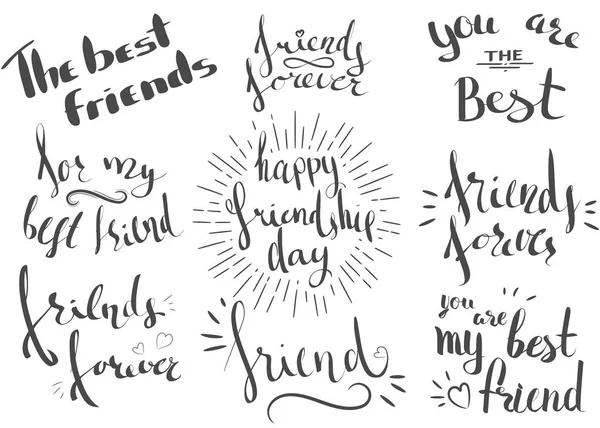 The best
friends
friends
forever
you are
THE
Best
for my
best friend
happy
friendship
day
friends
forever
friends
forever
friend
you
are
my best
friend